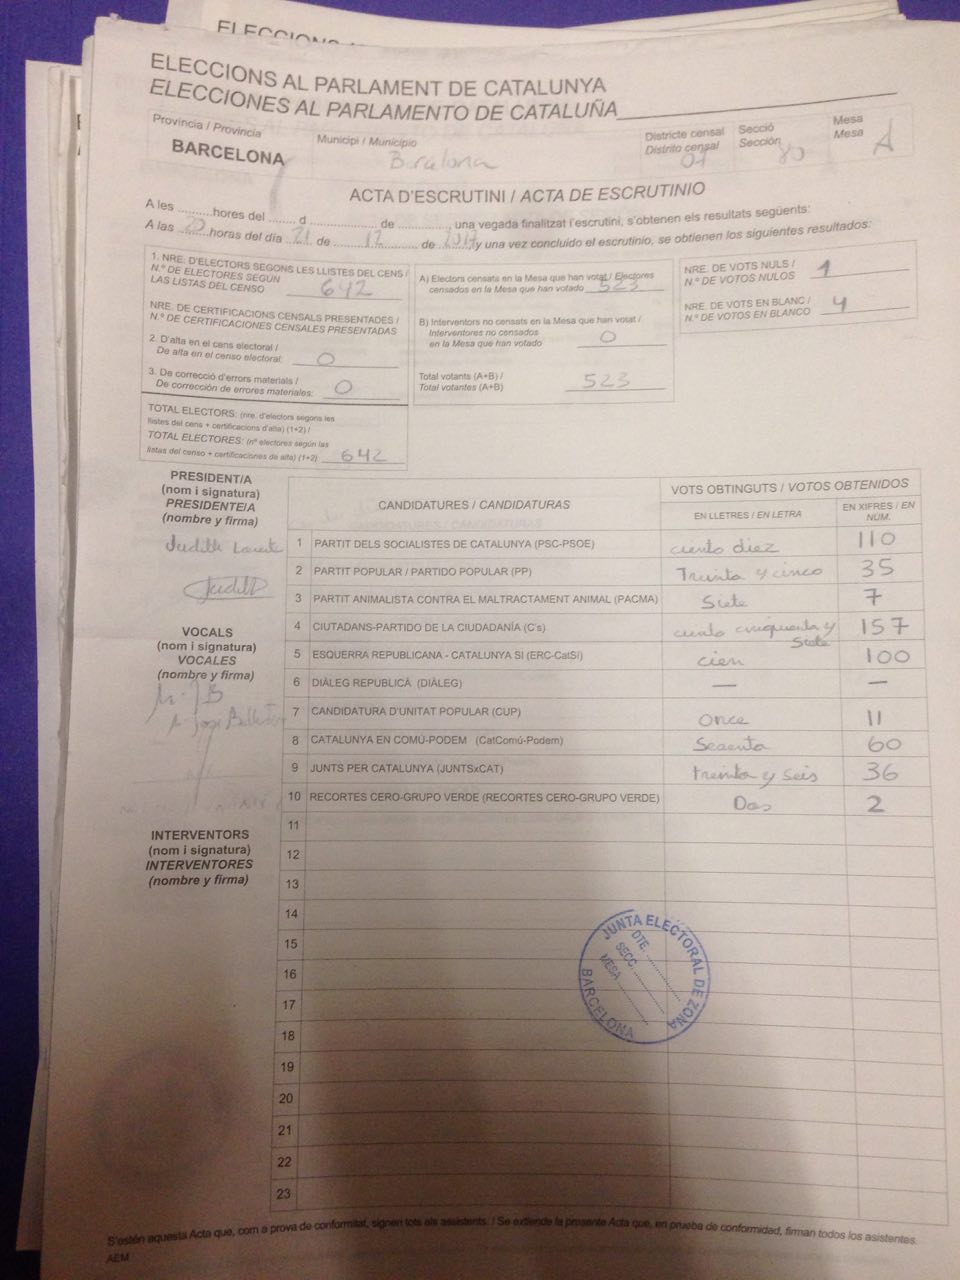 ELECCIONS
ELECCIONS AL PARLAMENT DE CATALUNYA
ELECCIONES AL PARLAMENTO DE CATALUÑA
Província / Provincia
BARCELONA
Municipi / Municipio
Barcelona
Districte censal
Distrito censal
Secció
Sección
80
Mesa
Mesa
A
ACTA D'ESCRUTINI / ACTA DE ESCRUTINIO
A les ..........hores del ........ d .................. de ................. una vegada finalitzat l'escrutini, s'obtenen els resultats següents:
A las ..20..horas del día ..21 de ........12........ de ..2017.y una vez concluido el escrutinio, se obtienen los siguientes resultados:
1. NRE. D'ELECTORS SEGONS LES LLISTES DEL CENS /
N.º DE ELECTORES SEGÚN
LAS LISTAS DEL CENSO 642
NRE. DE CERTIFICACIONS CENSALS PRESENTADES /
N.º DE CERTIFICACIONES CENSALES PRESENTADAS
2. D'alta en el cens electoral /
De alta en el censo electoral: 0
3. De correcció d'errors materials /
De corrección de errores materiales: 0
TOTAL ELECTORS: (nre. d'electors segons les
llistes del cens + certificacions d'alta) (1+2) /
TOTAL ELECTORES: (nº electores según las
listas del censo + certificaciones de alta) (1+2) 642
A) Electors censats en la Mesa que han votat / Electores
censados en la Mesa que han votado 523
B) Interventors no censats en la Mesa que han votat /
Interventores no censados
en la Mesa que han votado 0
Total votants (A+B) /
Total votantes (A+B) 523
NRE. DE VOTS NULS /
N.º DE VOTOS NULOS 1
NRE. DE VOTS EN BLANC /
N.º DE VOTOS EN BLANCO 4
PRESIDENT/A
(nom i signatura)
PRESIDENTE/A
(nombre y firma)
Judith
Judith
VOCALS
(nom i signatura)
VOCALES
(nombre y firma)
INTERVENTORS
(nom i signatura)
INTERVENTORES
(nombre y firma)
CANDIDATURES / CANDIDATURAS
VOTS OBTINGUTS / VOTOS OBTENIDOS
EN LLETRES / EN LETRA
EN XIFRES / EN NÚM.
1 PARTIT DELS SOCIALISTES DE CATALUNYA (PSC-PSOE) ciento diez 110
2 PARTIT POPULAR / PARTIDO POPULAR (PP) Treinta y cinco 35
3 PARTIT ANIMALISTA CONTRA EL MALTRACTAMENT ANIMAL (PACMA) Siete 7
4 CIUTADANS-PARTIDO DE LA CIUDADANÍA (C's) ciento cinquenta y Siete 157
5 ESQUERRA REPUBLICANA - CATALUNYA SÍ (ERC-CatSí) cien 100
6 DIÀLEG REPUBLICÀ (DIÀLEG) — —
7 CANDIDATURA D'UNITAT POPULAR (CUP) Once 11
8 CATALUNYA EN COMÚ-PODEM (CatComú-Podem) Sesenta 60
9 JUNTS PER CATALUNYA (JUNTSxCAT) treinta y seis 36
10 RECORTES CERO-GRUPO VERDE (RECORTES CERO-GRUPO VERDE) Dos 2
11
12
13
14
15
16
17
18
19
20
21
22
23
JUNTA ELECTORAL DE ZONA
DTE.
SECC.
MESA
BARCELONA
S'estén aquesta Acta que, com a prova de conformitat, signen tots els assistents. / Se extiende la presente Acta que, en prueba de conformidad, firman todos los asistentes.
AEM